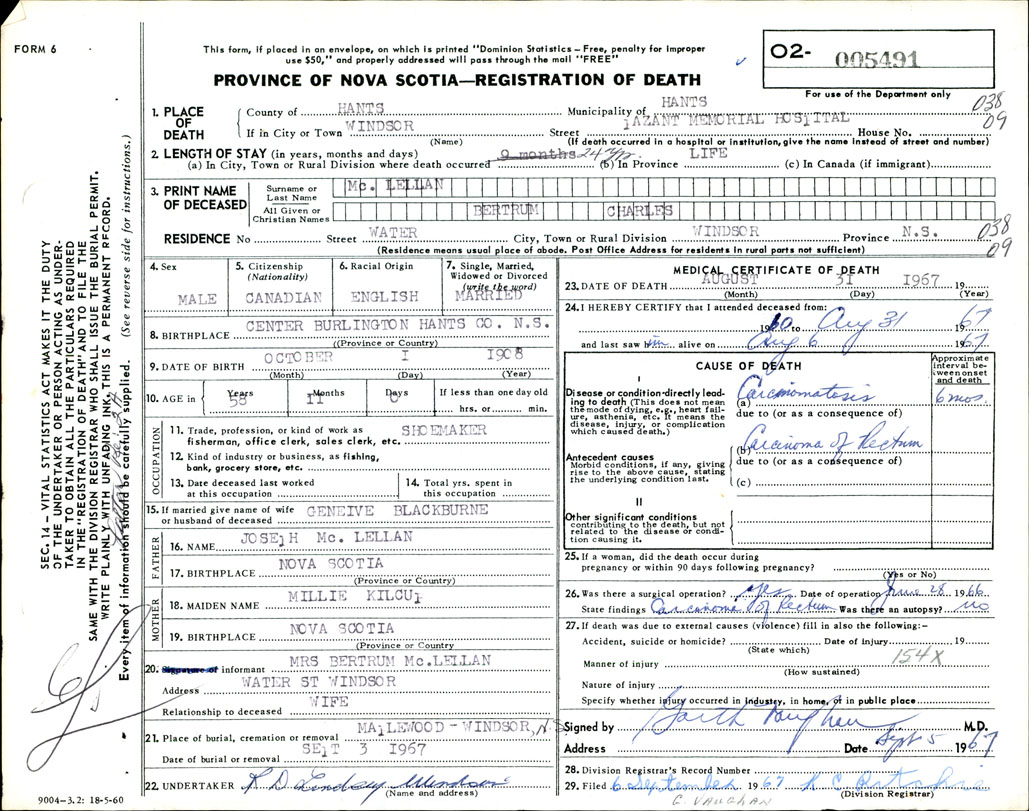 FORM 6
This form, if placed in an envelope, on which is printed "Dominion Statistics – Free, penalty for improper
use $50," and properly addressed will pass through the mail "FREE"
O2- 005491
For use of the Department only
PROVINCE OF NOVA SCOTIA—REGISTRATION OF DEATH
1. PLACE OF DEATH
County of HANTS Municipality of HANTS 038
If in City or Town WINDSOR Street MEMORIAL House No. 09
(Name) (If death occurred in a hospital or institution, give the name instead of street and number)
2. LENGTH OF STAY (in years, months and days)
(a) In City, Town or Rural Division where death occurred 9 months 24 yrs. (b) In Province LIFE (c) In Canada (if immigrant)
3. PRINT NAME OF DECEASED
Surname or Last Name Mc. LELLAN
All Given or Christian Names BERTRUM CHARLES
RESIDENCE No Street WATER City, Town or Rural Division WINDSOR Province N.S. 038
(Residence means usual place of abode. Post Office Address for residents in rural parts not sufficient) 09
4. Sex MALE
5. Citizenship (Nationality) CANADIAN
6. Racial Origin ENGLISH
7. Single, Married, Widowed or Divorced (write the word) MARRIED
8. BIRTHPLACE CENTER BURLINGTON HANTS CO. N.S.
(Province or Country)
9. DATE OF BIRTH OCTOBER I 1908
(Month) (Day) (Year)
10. AGE in Years 58 Months II Days 0 If less than one day old
hrs. or min.
OCCUPATION
11. Trade, profession, or kind of work as SHOEMAKER
fisherman, office clerk, sales clerk, etc.
12. Kind of industry or business, as fishing,
bank, grocery store, etc.
13. Date deceased last worked at this occupation
14. Total yrs. spent in this occupation
15. If married give name of wife or husband of deceased GENEIVE BLACKBURNE
FATHER
16. NAME JOSEPH Mc. LELLAN
17. BIRTHPLACE NOVA SCOTIA
(Province or Country)
MOTHER
18. MAIDEN NAME MILLIE KILCUP
19. BIRTHPLACE NOVA SCOTIA
(Province or Country
20. Signature of informant MRS BERTRUM Mc.LELLAN
Address WATER ST WINDSOR
Relationship to deceased WIFE
21. Place of burial, cremation or removal MAPLEWOOD - WINDSOR, N.S
Date of burial or removal SEPT 3 1967
22. UNDERTAKER K D Lindsay Windsor
(Name and address)
9004-3.2: 18-5-60
MEDICAL CERTIFICATE OF DEATH
23. DATE OF DEATH AUGUST 31 1967 19
(Month) (Day) (Year)
24. I HEREBY CERTIFY that I attended deceased from:
1960 to Aug 31 1967
and last saw him alive on Aug 6 1967
CAUSE OF DEATH
Approximate interval between onset and death
I
Disease or condition directly leading to death (This does not mean the mode of dying, e.g., heart failure, asthenia, etc. It means the disease, injury, or complication which caused death.)
(a) Carcinomatosis 6 mos.
due to (or as a consequence of)
(b) Carcinoma of Rectum
Antecedent causes
Morbid conditions, if any, giving rise to the above cause, stating the underlying condition last.
due to (or as a consequence of)
(c)
II
Other significant conditions
contributing to the death, but not related to the disease or condition causing it.
25. If a woman, did the death occur during
pregnancy or within 90 days following pregnancy?
(Yes or No)
26. Was there a surgical operation? yes Date of operation June 28 1966
State findings Carcinoma of Rectum Was there an autopsy? no
27. If death was due to external causes (violence) fill in also the following:-
Accident, suicide or homicide? Date of injury 19
(State which)
154X
Manner of injury
(How sustained)
Nature of injury
Specify whether injury occurred in industry, in home, or in public place
Signed by Garth Vaughan M.D.
Address Date Sept 5 1967
28. Division Registrar's Record Number
29. Filed 6 September 1967
(Division Registrar)
G. VAUGHAN
SEC. 14 – VITAL STATISTICS ACT MAKES IT THE DUTY
OF THE UNDERTAKER OR PERSON ACTING AS UNDER-
TAKER TO OBTAIN ALL THE PARTICULARS REQUIRED
IN THE "REGISTRATION OF DEATH" AND TO FILE THE
SAME WITH THE DIVISION REGISTRAR WHO SHALL ISSUE THE BURIAL PERMIT.
WRITE PLAINLY WITH UNFADING INK, THIS IS A PERMANENT RECORD.
Every item of information should be carefully supplied. (See reverse side for instructions.)